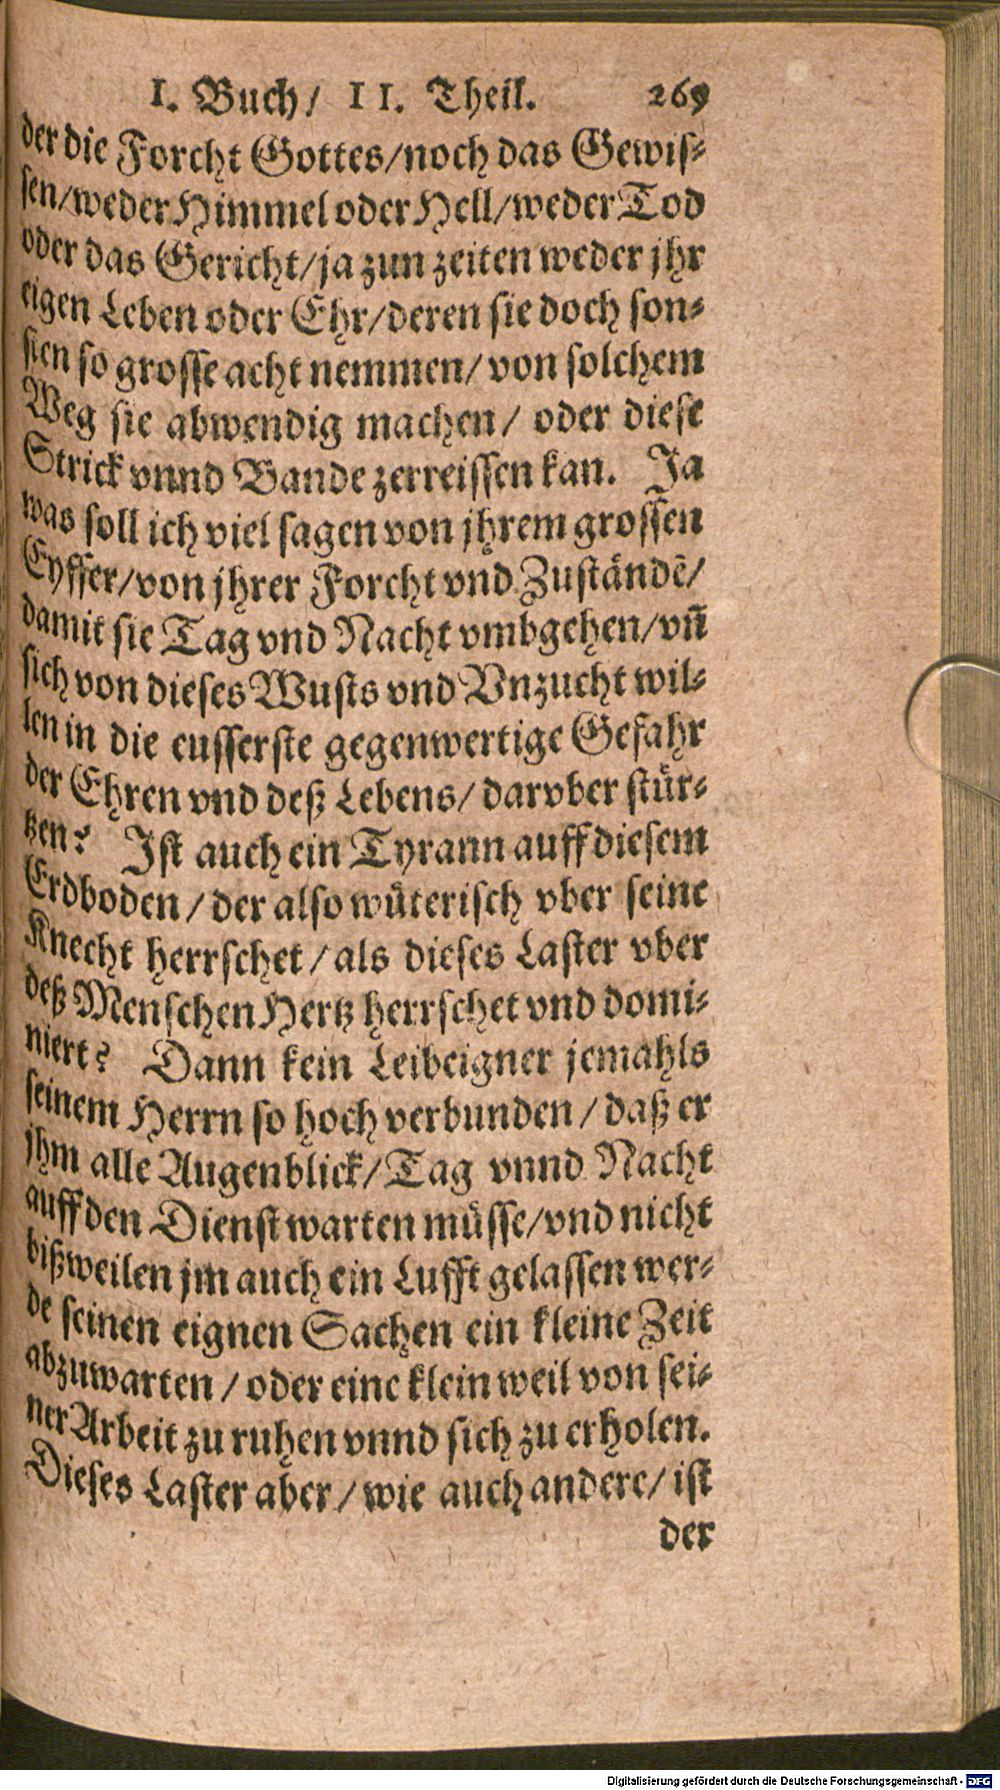 I. Buch/ II. Theil. 269
der die Forcht Gottes/noch das Gewis-
sen/weder Himmel oder Hell/weder Tod
oder das Gericht/ja zun zeiten weder jhr
eigen Leben oder Ehr/deren sie doch son-
sten so grosse acht nemmen/von solchem
Weg sie abwendig machen/ oder diese
Strick vnnd Bande zerreissen kan. Ja
was soll ich viel sagen von jhrem grossen
Eyffer/von jhrer Forcht vnd Zuständẽ/
damit sie Tag vnd Nacht vmbgehen/vñ
sich von dieses Wusts vnd Vnzucht wil-
len in die eusserste gegenwertige Gefahr
der Ehren vnd deß Lebens/ darvber stür-
tzen? Ist auch ein Tyrann auff diesem
Erdboden/der also wüterisch vber seine
Knecht herrschet/als dieses Laster vber
deß Menschen Hertz herrschet vnd domi-
niert? Dann kein Leibeigner jemahls
seinem Herrn so hoch verbunden/daß er
jhm alle Augenblick/Tag vnnd Nacht
auff den Dienst warten müsse/vnd nicht
bißweilen jm auch ein Lufft gelassen wer-
de seinen eignen Sachen ein kleine Zeit
abzuwarten/oder eine klein weil von sei-
ner Arbeit zu ruhen vnnd sich zu erholen.
Dieses Laster aber/wie auch andere/ist
der
Digitalisierung gefördert durch die Deutsche Forschungsgemeinschaft - DFG